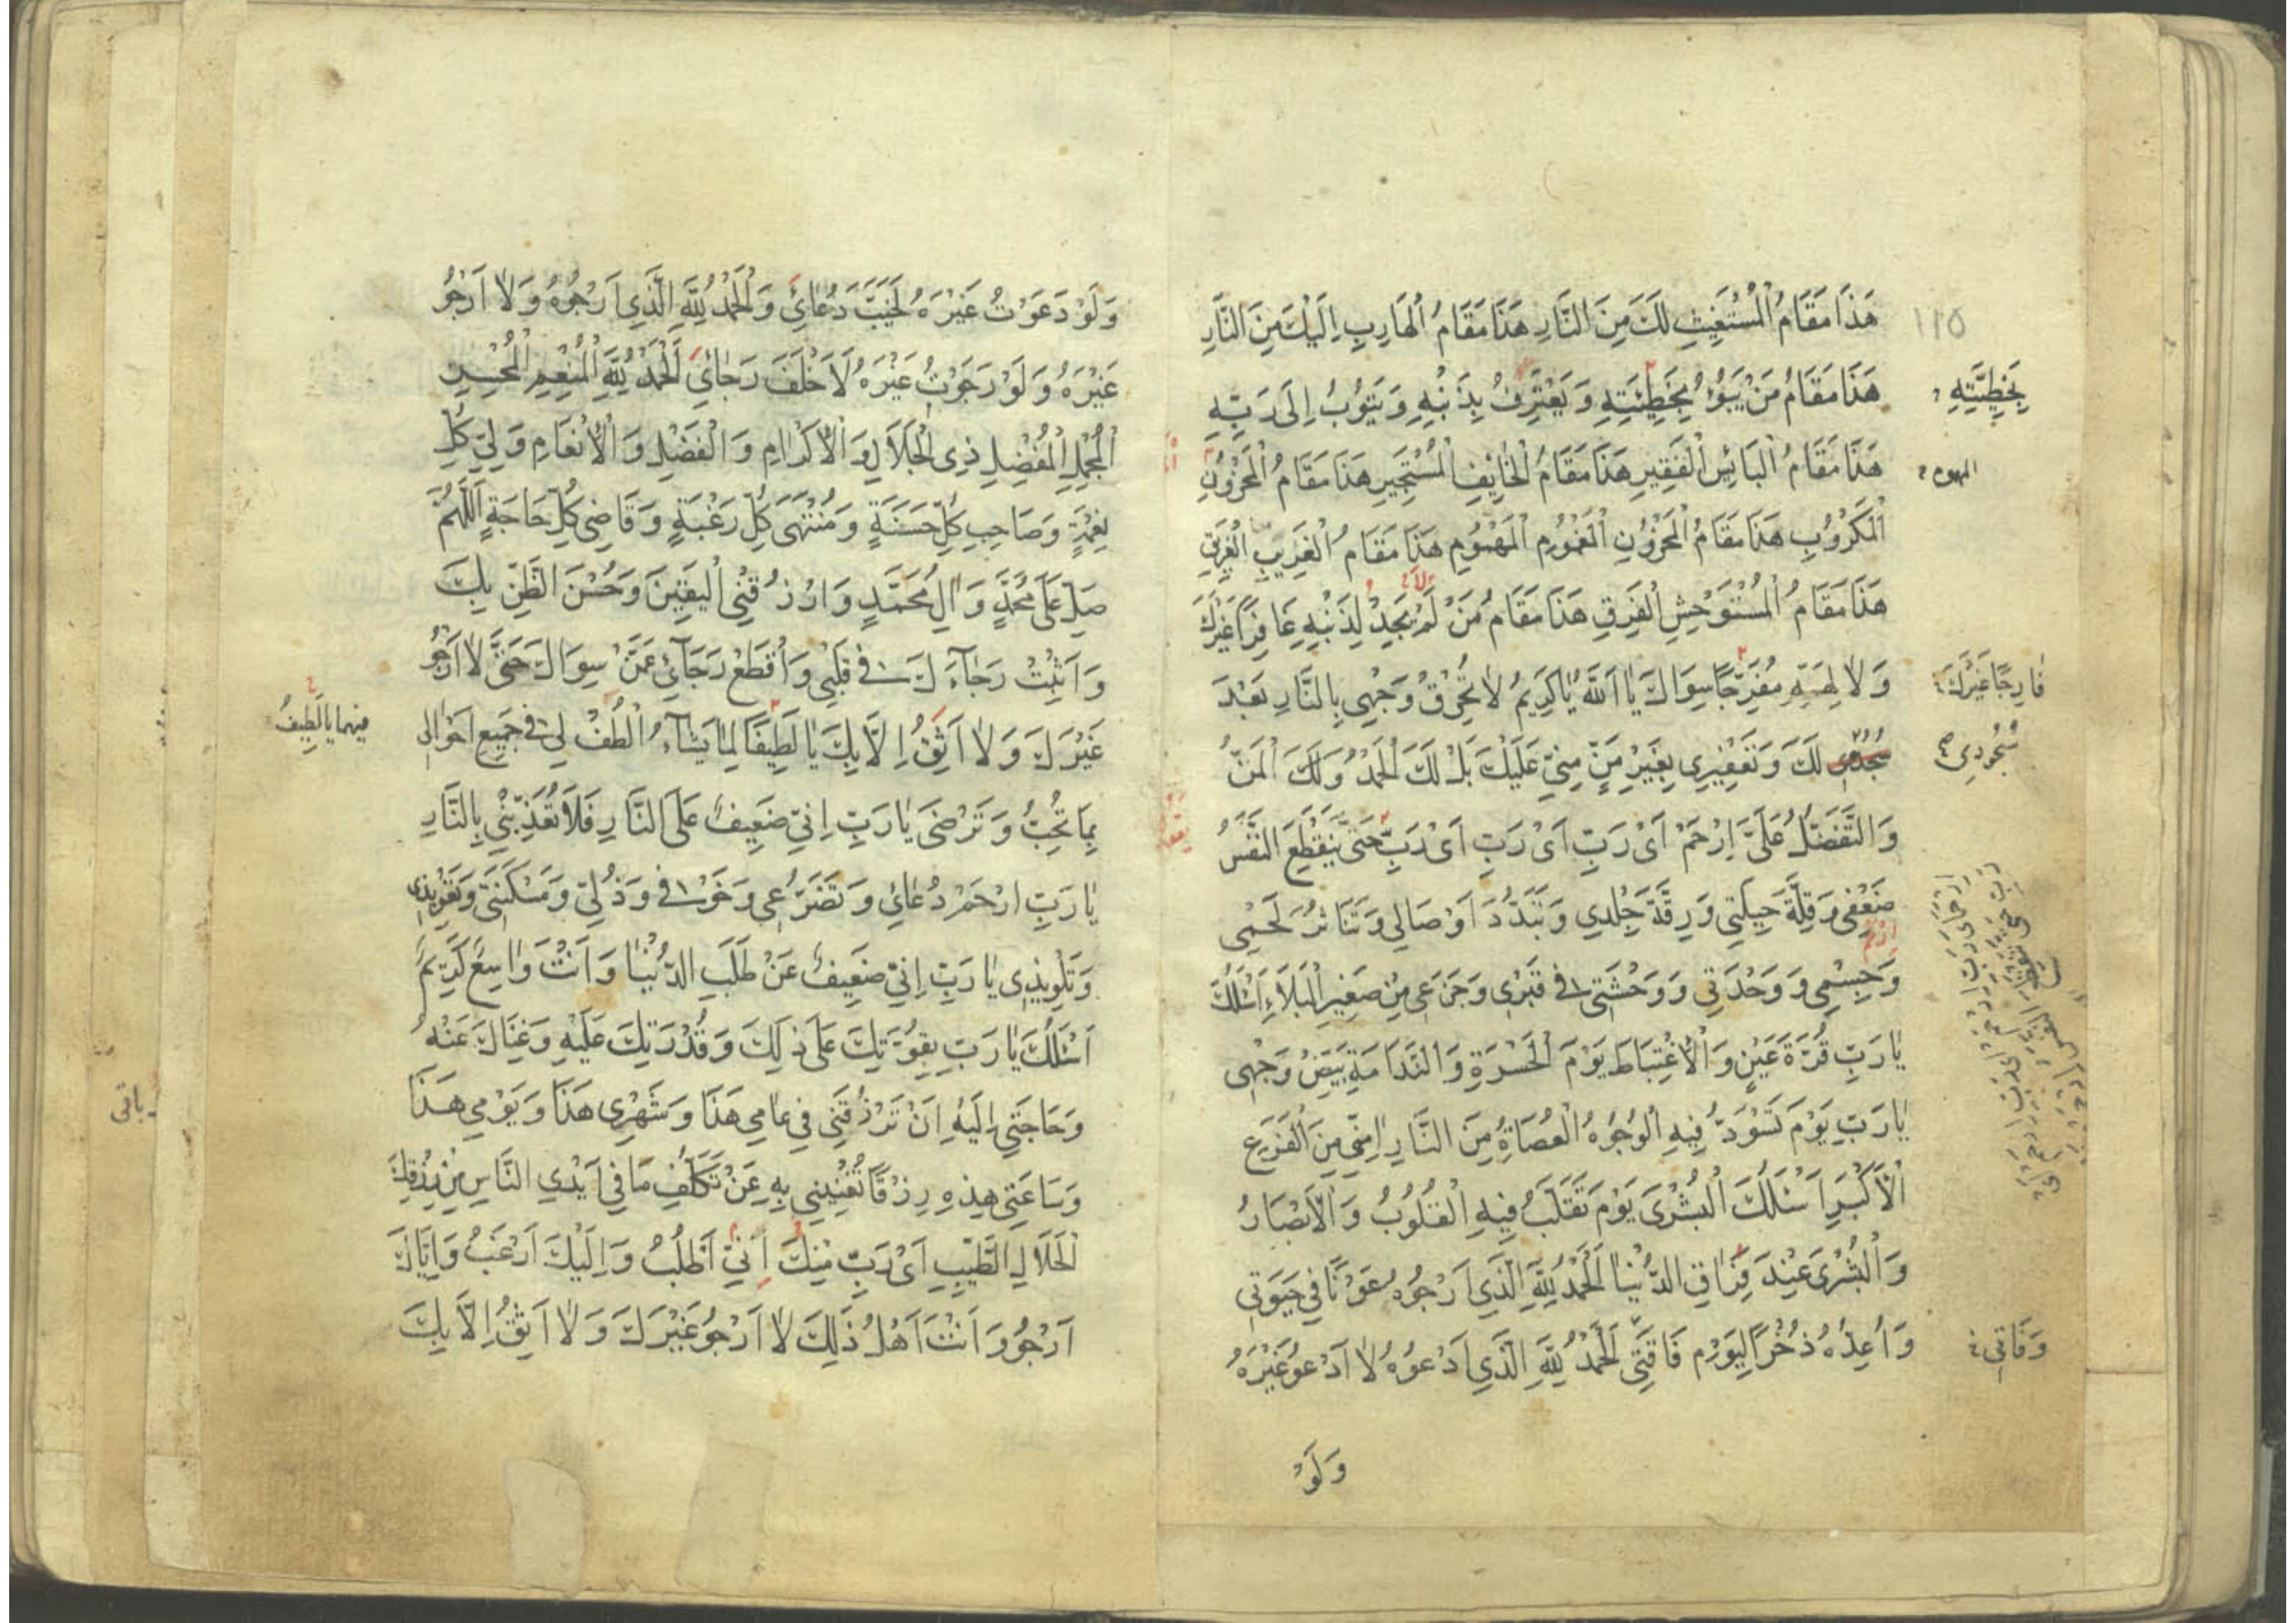 ١١٥
هَذَا مَقَامُ الْمُسْتَغِيثِ لَكَ مِنَ النَّارِ هَذَا مَقَامُ الْهَارِبِ اِلَيْكَ مِنَ النَّارِ
هَذَا مَقَامُ مَنْ يَبُوْءُ بِخَطِيْئَتِهِ وَيَعْتَرِفُ بِذَنْبِهِ وَيَتُوْبُ اِلَى رَبِّهِ
بِخَطِيَّتِهِ
هَذَا مَقَامُ الْبَائِسِ الْفَقِيرِ هَذَا مَقَامُ الْخَايِفِ الْمُسْتَجِيرِ هَذَا مَقَامُ الْمَحْزُوْنِ
المهموم
الْمَكْرُوْبِ هَذَا مَقَامُ الْمَحْزُوْنِ الْمَغْمُوْمِ الْمَهْمُوْمِ هَذَا مَقَامُ الْغَرِيبِ الْغَرِيقِ
هَذَا مَقَامُ الْمُسْتَوْحِشِ الْفَرِقِ هَذَا مَقَامُ مَنْ لَمْ يَجِدْ لِذَنْبِهِ غَافِرًا غَيْرَكَ
وَلَا لِهَمِّهِ مُفَرِّجًا سِوَاكَ يَا اَللّٰهُ يَا كَرِيْمُ لَا تُحْرِقْ وَجْهِي بِالنَّارِ بَعْدَ
فَارِجًا غَيْرَكَ
لَكَ وَتَعْفِيْرِي بِغَيْرِ مَنٍّ مِنِّي عَلَيْكَ بَلْ لَكَ الْحَمْدُ وَلَكَ الْمَنُّ
سُجُودِي
وَالتَّفَضُّلُ عَلَىَّ اِرْحَمْ اَىْ رَبِّ اَىْ رَبِّ اَىْ رَبِّ حَتَّى يَنْقَطِعَ النَّفَسُ
ضَعْفِي وَقِلَّةَ حِيلَتِي وَرِقَّةَ جِلْدِي وَتَبَدُّدَ اَوْصَالِي وَتَنَاثُرَ لَحْمِي
وَجِسْمِي وَوَحْدَتِي وَوَحْشَتِي فِي قَبْرِي وَجَزَعِي مِنْ صَغِيْرِ الْبَلَاءِ اَسْئَلُكَ
يَا رَبِّ قُرَّةَ عَيْنٍ وَالْاِغْتِبَاطَ يَوْمَ الْحَسْرَةِ وَالنَّدَامَةِ بَيِّضْ وَجْهِى
يَا رَبِّ يَوْمَ تَسْوَدُّ فِيهِ الْوُجُوْهُ الْعُصَاةِ مِنَ النَّارِ اٰمِنِّي مِنَ الْفَزَعِ
الْاَكْبَرِ اَسْئَلُكَ الْبُشْرَى يَوْمَ تُقَلَّبُ فِيهِ الْقُلُوْبُ وَالْاَبْصَارُ
وَالْبُشْرَى عِنْدَ فِرَاقِ الدُّنْيَا اَلْحَمْدُ لِلّٰهِ الَّذِي اَرْجُوْهُ عَوْنًا فِي حَيٰوتِي
وَاُعِدُّهُ ذُخْرًا لِيَوْمِ فَاقَتِي اَلْحَمْدُ لِلّٰهِ الَّذِي اَدْعُوْهُ لَا اَدْعُوْ غَيْرَهُ
وَفَاتِي
وَلَوْ
وَلَوْ دَعَوْتُ غَيْرَهُ لَخَيَّبَ دُعَائِي وَالْحَمْدُ لِلّٰهِ الَّذِي اَرْجُوْهُ وَلَا اَرْجُوْ
غَيْرَهُ وَلَوْ رَجَوْتُ غَيْرَهُ لَاَخْلَفَ رَجَائِي اَلْحَمْدُ لِلّٰهِ الْمُنْعِمِ الْمُحْسِنِ
الْمُجْمِلِ الْمُفْضِلِ ذِى الْجَلَالِ وَالْاِكْرَامِ وَالْفَضْلِ وَالْاِنْعَامِ وَلِيِّ كُلِّ
نِعْمَةٍ وَصَاحِبِ كُلِّ حَسَنَةٍ وَمُنْتَهَى كُلِّ رَغْبَةٍ وَقَاضِي كُلِّ حَاجَةٍ اَللّٰهُمَّ
صَلِّ عَلَى مُحَمَّدٍ وَاٰلِ مُحَمَّدٍ وَارْزُقْنِي الْيَقِيْنَ وَحُسْنَ الظَّنِّ بِكَ
وَاَثْبِتْ رَجَاءَكَ فِي قَلْبِي وَاقْطَعْ رَجَائِي عَمَّنْ سِوَاكَ حَتَّى لَا اَرْجُوْ
غَيْرَكَ وَلَا اَثِقُ اِلَّا بِكَ يَا لَطِيفًا لِمَا يَشَاءُ الْطُفْ لِي فِي جَمِيعِ اَحْوَالِي
فيهما يَا لَطِيفُ
بِمَا تُحِبُّ وَتَرْضَى يَا رَبِّ اِنِّي ضَعِيفٌ عَلَى النَّارِ فَلَا تُعَذِّبْنِي بِالنَّارِ
يَا رَبِّ ارْحَمْ دُعَائِي وَتَضَرُّعِي وَخَوْفِي وَذُلِّي وَمَسْكَنَتِي وَتَعْوِيْذِي
وَتَلْوِيْذِي يَا رَبِّ اِنِّي ضَعِيفٌ عَنْ طَلَبِ الدُّنْيَا وَاَنْتَ وَاسِعٌ كَرِيْمٌ
اَسْئَلُكَ يَا رَبِّ بِقُوَّتِكَ عَلَى ذٰلِكَ وَقُدْرَتِكَ عَلَيْهِ وَغِنَاكَ عَنْهُ
وَحَاجَتِي اِلَيْهِ اَنْ تَرْزُقَنِي فِي عَامِي هَذَا وَشَهْرِي هَذَا وَيَوْمِي هَذَا
وَسَاعَتِي هٰذِهِ رِزْقًا تُغْنِيْنِي بِهِ عَنْ تَكَلُّفِ مَا فِي اَيْدِي النَّاسِ مِنْ رِزْقِكَ
الْحَلَالِ الطَّيِّبِ اَىْ رَبِّ مِنْكَ اَطْلُبُ وَاِلَيْكَ اَرْغَبُ وَاِيَّاكَ
اَرْجُوْ وَاَنْتَ اَهْلُ ذٰلِكَ لَا اَرْجُوْ غَيْرَكَ وَلَا اَثِقُ اِلَّا بِكَ